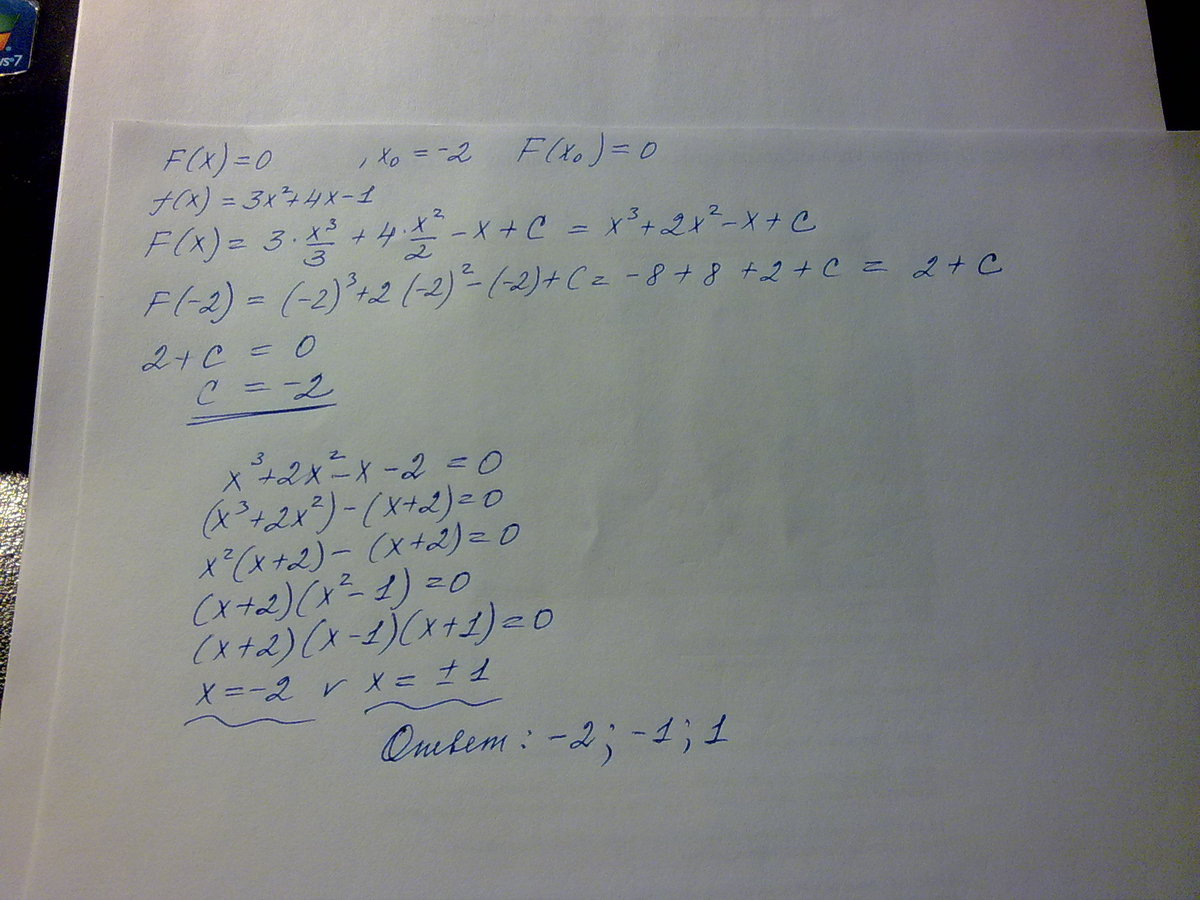 s 7
F(x)=0 , x₀ = -2 F(x₀)=0
f(x) = 3x²+4x-1
F(x) = 3·x³/3 + 4·x²/2 - x + C = x³+2x²-x+C
F(-2) = (-2)³+2(-2)²-(-2)+C = -8+8+2+C = 2+C
2+C = 0
C = -2
x³+2x²-x-2 = 0
(x³+2x²)-(x+2)=0
x²(x+2)-(x+2)=0
(x+2)(x²-1)=0
(x+2)(x-1)(x+1)=0
x=-2 v x= ±1
Ответ: -2; -1; 1